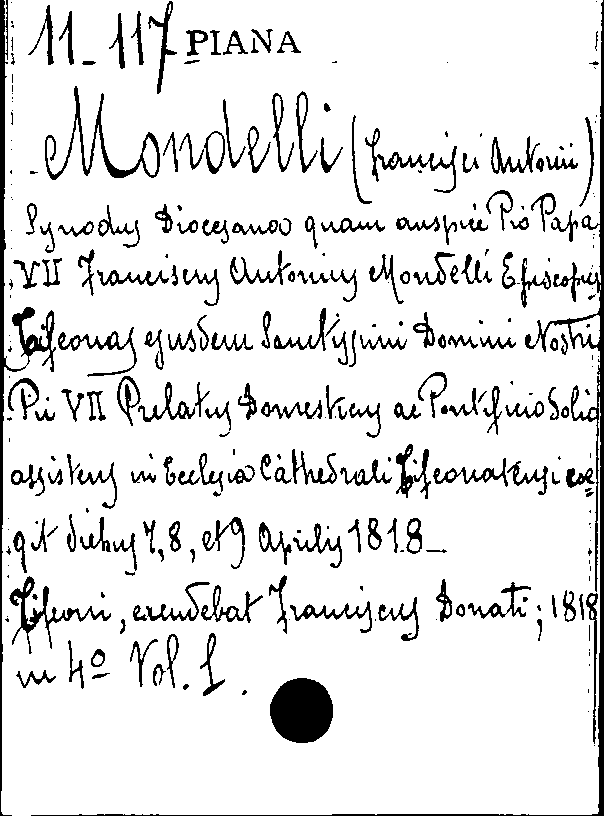 11-117 PIANA
Mondelli (Francisci Antonii)
Synodus Diocesana quam auspice Pio Papa
VII Franciscus Antonius Mondelli Episcopus
ejusdem Sanctissimi Domini Nostri
Pii VII Prelatus Domesticus ac Pontificio Solio
assistens in Ecclesia Cathedrali coe=
git diebus 7, 8, et 9 Aprilis 1818_
excudebat Franciscus Donati; 1818
in 4º Vol. 1.